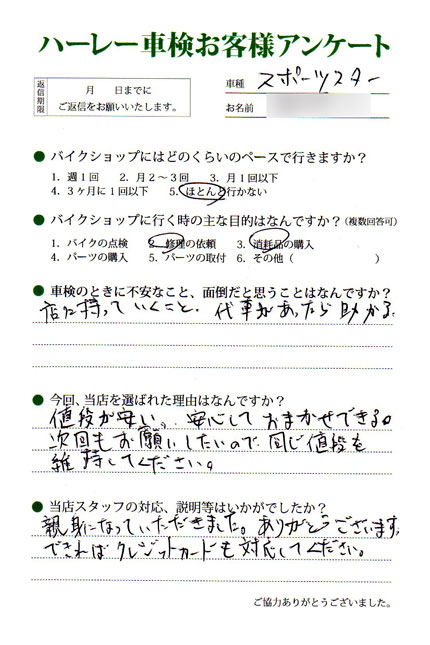 ハーレー車検お客様アンケート
返信期限
月　日までに
ご返信をお願いいたします。
車種 スポーツスター
お名前
● バイクショップにはどのくらいのペースで行きますか？
1. 週1回　2. 月2～3回　3. 月1回以下
4. 3ヶ月に1回以下　5. ほとんど行かない
● バイクショップに行く時の主な目的はなんですか？（複数回答可）
1. バイクの点検　2. 修理の依頼　3. 消耗品の購入
4. パーツの購入　5. パーツの取付　6. その他（　　　）
● 車検のときに不安なこと、面倒だと思うことはなんですか？
店に持っていくこと、代車があったら助かる。
● 今回、当店を選ばれた理由はなんですか？
値段が安い。安心しておまかせできる。
次回もお願いしたいので、同じ値段を
維持してください。
● 当店スタッフの対応、説明等はいかがでしたか？
親身になっていただきました。ありがとうございます。
できればクレジットカードも対応してください。
ご協力ありがとうございました。